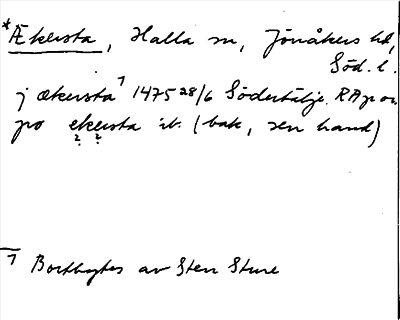 *Äkersta, Halla sn, Jönåkers hd,
Söd. l.
j ækersta ⁊ 1475 28/6 Södertälje. RAp or
po ekersta ib. (bak, sen hand)
? ?
⁊ Bortbytes av Sten Sture